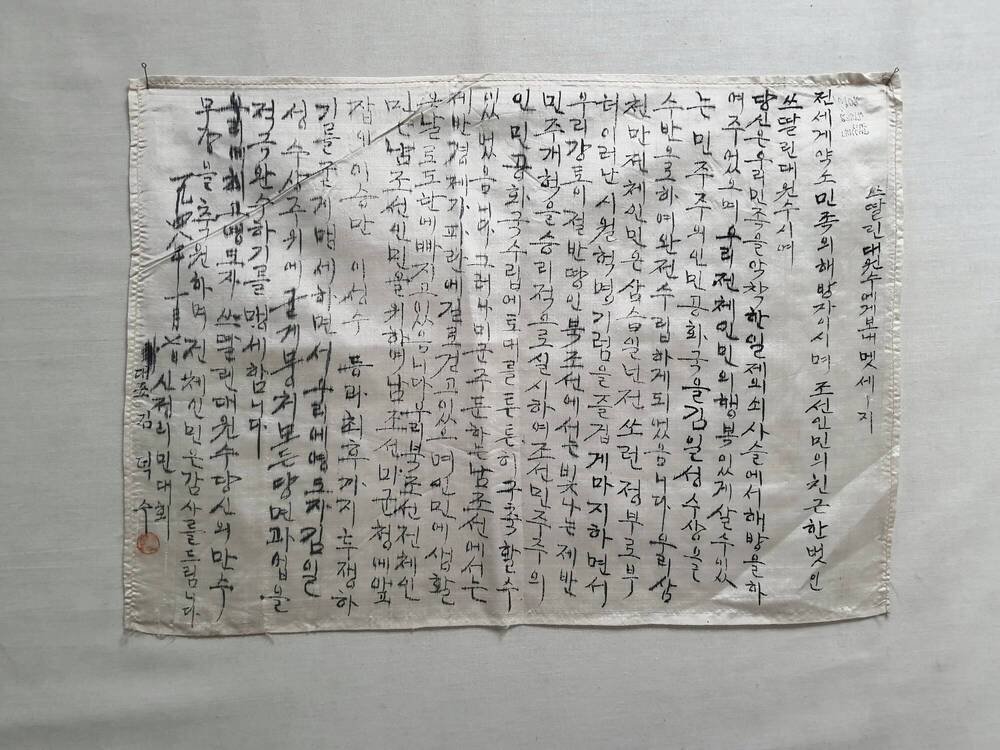 쓰딸린대원수에게보내는멧세ー지
전세계약소민족의해방자이시며 조선인민의친근한벗인
쓰딸린대원수시여
당신은우리민족을악착한일제의쇠사슬에서해방을하
여주었으며 우리전체인민의행복있게살수있
는 민주주의인민공화국을김일성수상을
수반으로하여완전수립하게되었음니다 우리삼
천만전체인민은삼십일년전 쏘련정부로부
터이러난시월혁명기렴을즐겁게마지하면서
우리강토의절반땅인북조선에서는빛나는제반
민주개혁을승리적으로실시하여조선민주주의
인민공화국수립에토대를튼튼히구축할수
있었음니다 그러나미군주둔하는남조선에서는
제반경제가파란에길로걷고있으며인민에생활
은날로도탄에빠지고있음니다우리북조선전체인
민은남조선인민을위하여남조선미군청에앞
잡이 이승만 이성수 등과 최후까지 투쟁하
기를굳게맹세하면서 우리에영도자김일
성 수상주위에 굳게뭉처모든당면과업을
적극완수하기를 맹세합니다
우리에최고영도자 쓰딸린대원수당신의만수
무강을축원하며 전체인민은감사를드림니다
一九四八年十一月 신전리민대회
대표 김 덕 수